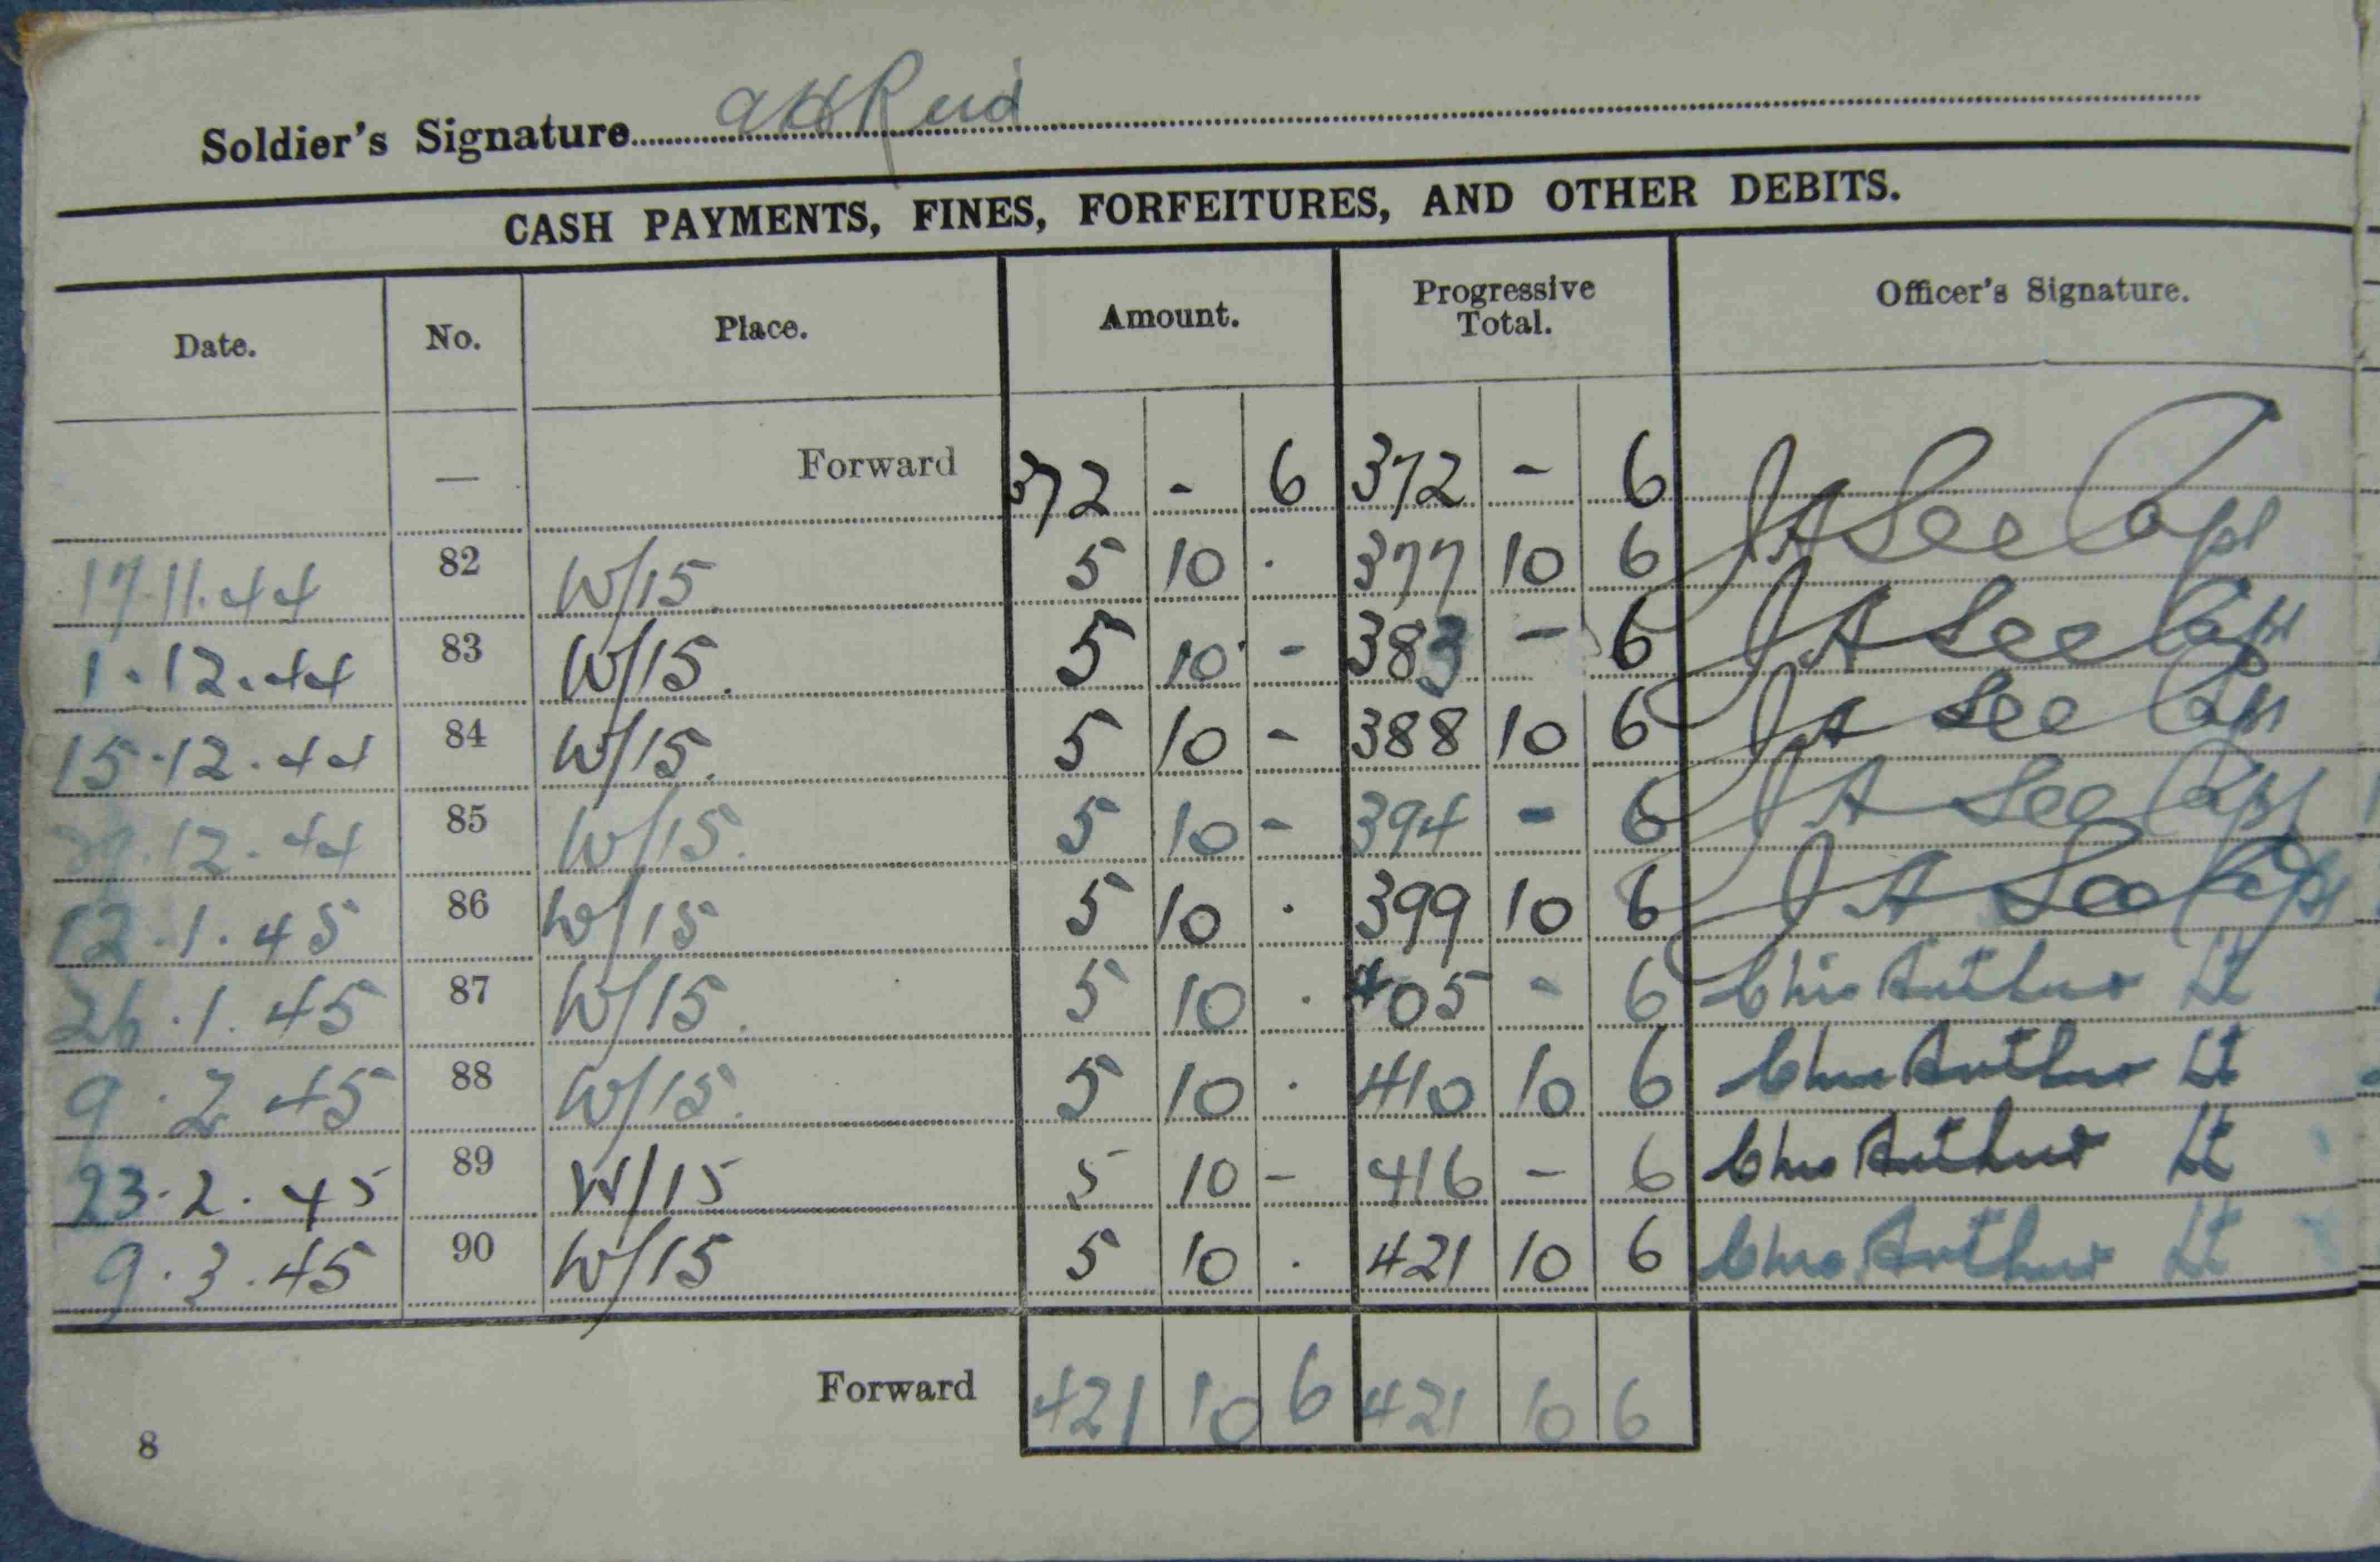 Soldier's Signature AH Reid
CASH PAYMENTS, FINES, FORFEITURES, AND OTHER DEBITS.
Date. No. Place. Amount. Progressive Total. Officer's Signature.
— Forward 372 - 6 372 - 6
17.11.44 82 W/15. 5 10 . 377 10 6 JA See Capt
1.12.44 83 W/15. 5 10 - 383 - 6 JA See Capt
15.12.44 84 W/15. 5 10 - 388 10 6 JA See Capt
29.12.44 85 W/15. 5 10 - 394 - 6 JA See Capt
12.1.45 86 W/15 5 10 . 399 10 6 JA See Capt
26.1.45 87 W/15. 5 10 . 405 - 6 Arthur Lt
9.2.45 88 W/15. 5 10 . 410 10 6 Arthur Lt
23.2.45 89 W/15 5 10 - 416 - 6 Arthur Lt
9.3.45 90 W/15 5 10 . 421 10 6 Arthur Lt
Forward 421 10 6 421 10 6
8